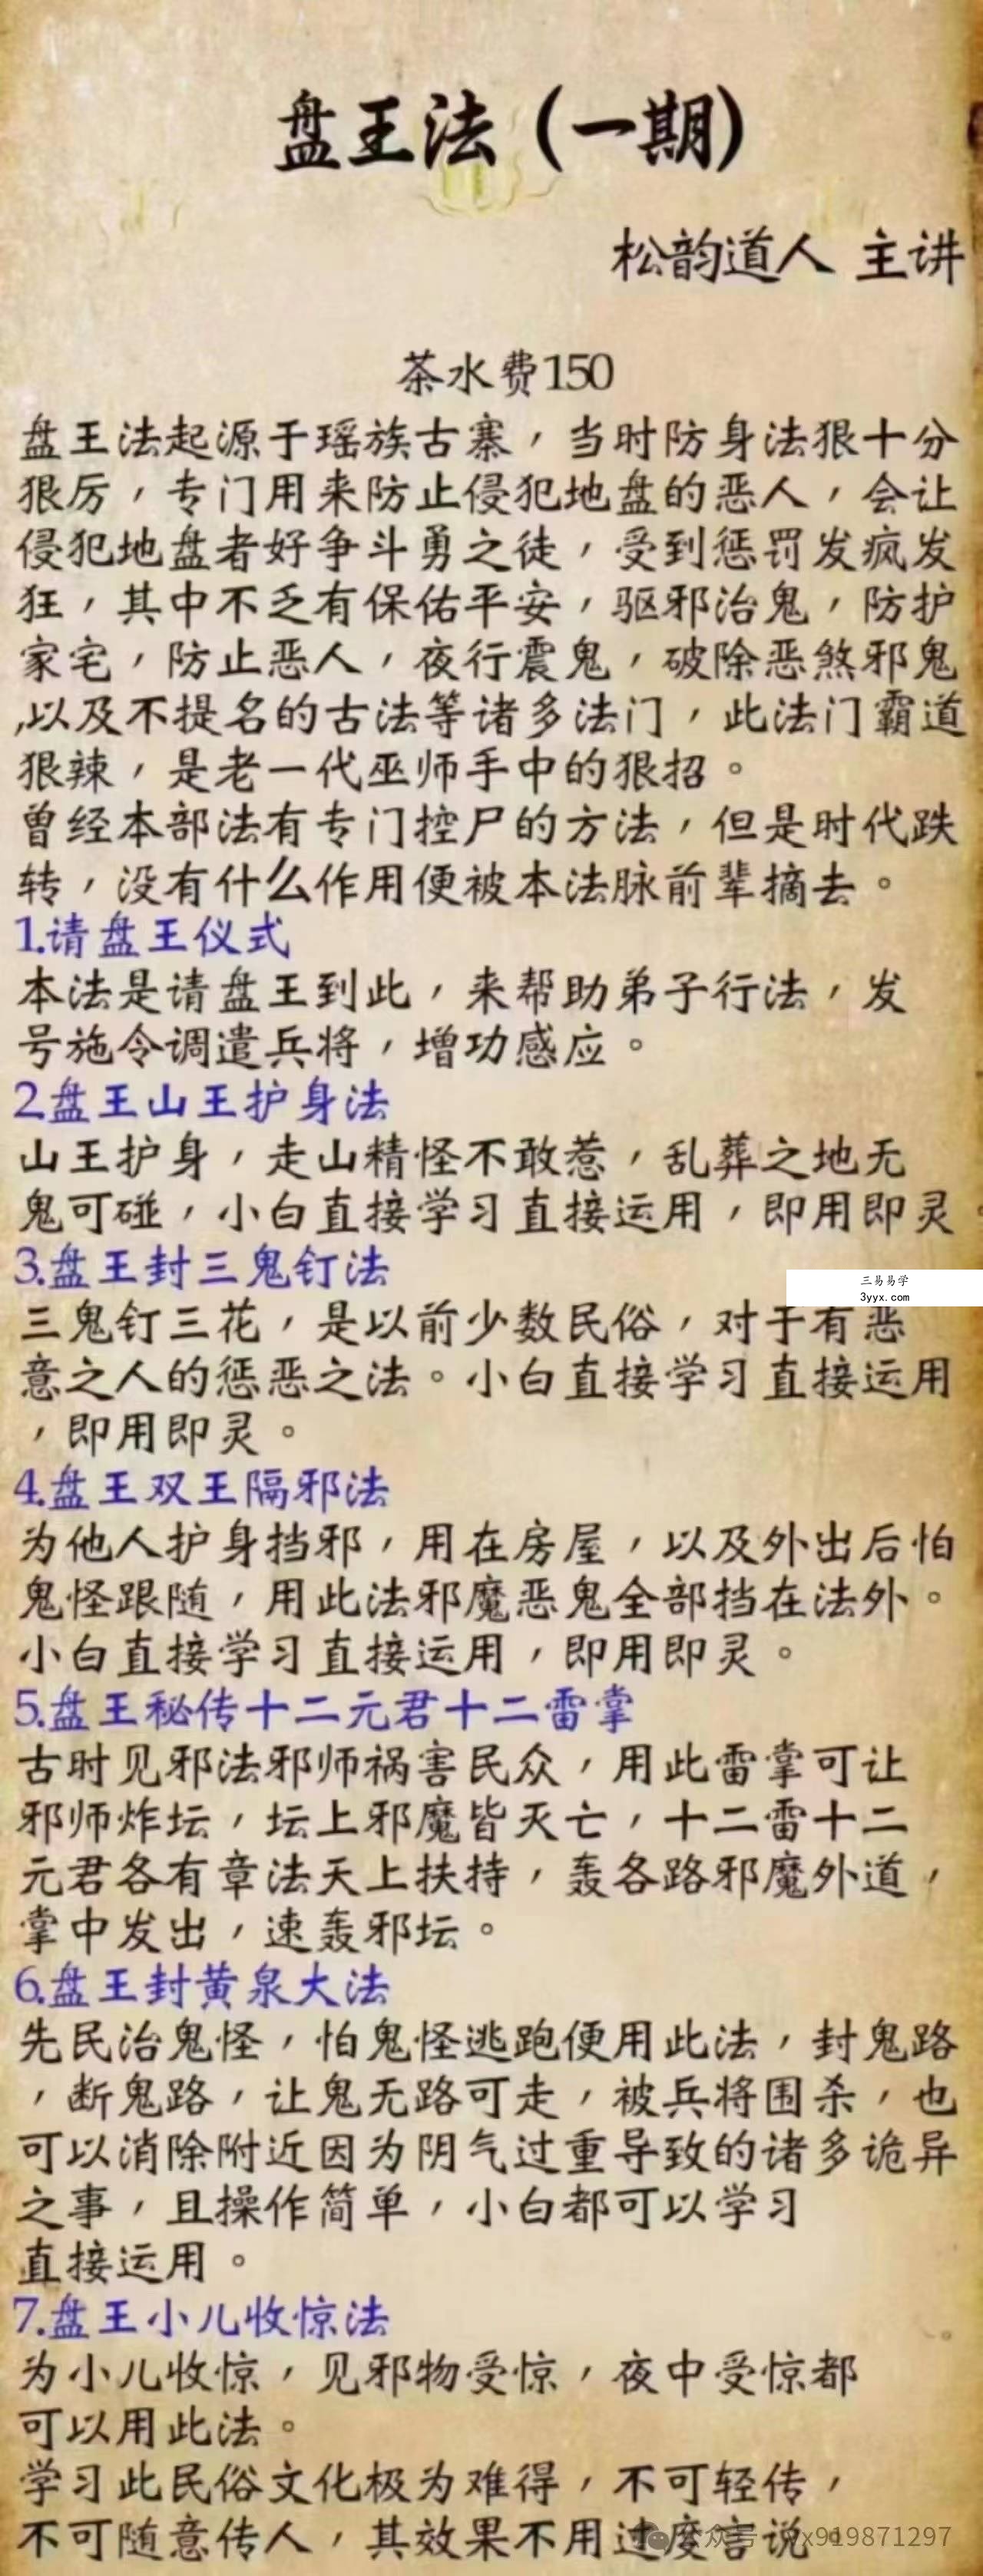 盘王法（一期）
松韵道人 主讲
茶水费150
盘王法起源于瑶族古寨，当时防身法狠十分
狠厉，专门用来防止侵犯地盘的恶人，会让
侵犯地盘者好争斗勇之徒，受到惩罚发疯发
狂，其中不乏有保佑平安，驱邪治鬼，防护
家宅，防止恶人，夜行震鬼，破除恶煞邪鬼
,以及不提名的古法等诸多法门，此法门霸道
狠辣，是老一代巫师手中的狠招。
曾经本部法有专门控尸的方法，但是时代跌
转，没有什么作用便被本法脉前辈摘去。
1.请盘王仪式
本法是请盘王到此，来帮助弟子行法，发
号施令调遣兵将，增功感应。
2.盘王山王护身法
山王护身，走山精怪不敢惹，乱葬之地无
鬼可碰，小白直接学习直接运用，即用即灵。
3.盘王封三鬼钉法
三易易学
3yyx.com
三鬼钉三花，是以前少数民俗，对于有恶
意之人的惩恶之法。小白直接学习直接运用
，即用即灵。
4.盘王双王隔邪法
为他人护身挡邪，用在房屋，以及外出后怕
鬼怪跟随，用此法邪魔恶鬼全部挡在法外。
小白直接学习直接运用，即用即灵。
5.盘王秘传十二元君十二雷掌
古时见邪法邪师祸害民众，用此雷掌可让
邪师炸坛，坛上邪魔皆灭亡，十二雷十二
元君各有章法天上扶持，轰各路邪魔外道，
掌中发出，速轰邪坛。
6.盘王封黄泉大法
先民治鬼怪，怕鬼怪逃跑便用此法，封鬼路
，断鬼路，让鬼无路可走，被兵将围杀，也
可以消除附近因为阴气过重导致的诸多诡异
之事，且操作简单，小白都可以学习
直接运用。
7.盘王小儿收惊法
为小儿收惊，见邪物受惊，夜中受惊都
可以用此法。
学习此民俗文化极为难得，不可轻传，
不可随意传人，其效果不用过度言说。
公众号 wx919871297